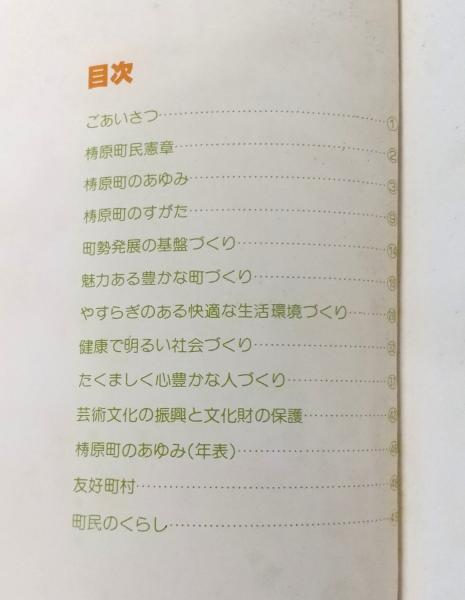 目次
ごあいさつ……①
梼原町民憲章……②
梼原町のあゆみ……③
梼原町のすがた……⑨
町勢発展の基盤づくり……⑭
魅力ある豊かな町づくり……
やすらぎのある快適な生活環境づくり……
健康で明るい社会づくり……
たくましく心豊かな人づくり……
芸術文化の振興と文化財の保護……
梼原町のあゆみ(年表)……
友好町村……
町民のくらし……